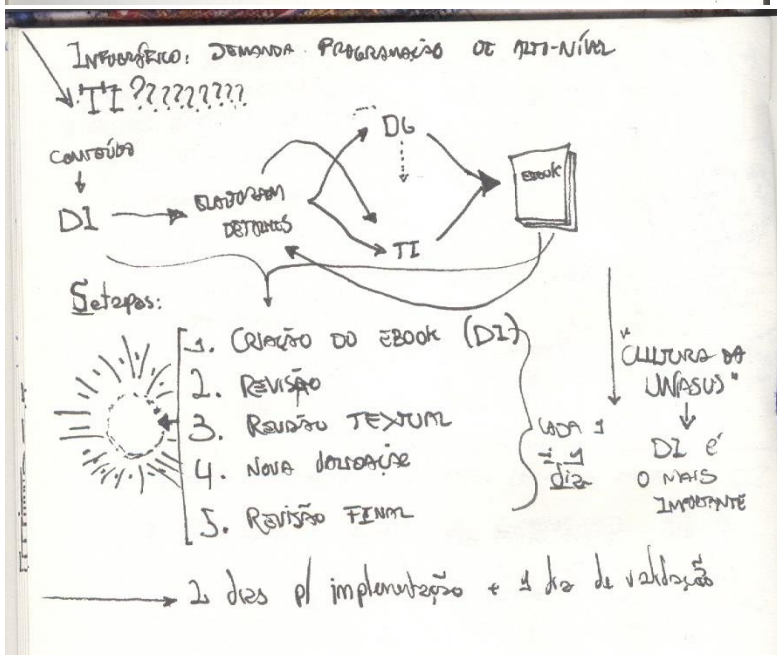 INFOGRÁFICO: DEMANDA PROGRAMAÇÃO DE ALTO-NÍVEL
TI ?????????
CONTEÚDO
DI
ELABORAM
DETALHES
DG
TI
EBOOK
5 etapas:
1. CRIAÇÃO DO EBOOK (DI)
2. REVISÃO
3. REVISÃO TEXTUAL
4. NOVA
5. REVISÃO FINAL
CADA 1
= 1
dia
"CULTURA DA
UNASUS"
DI É
O MAIS
IMPORTANTE
2 dias p/ implementação + 1 dia de validação